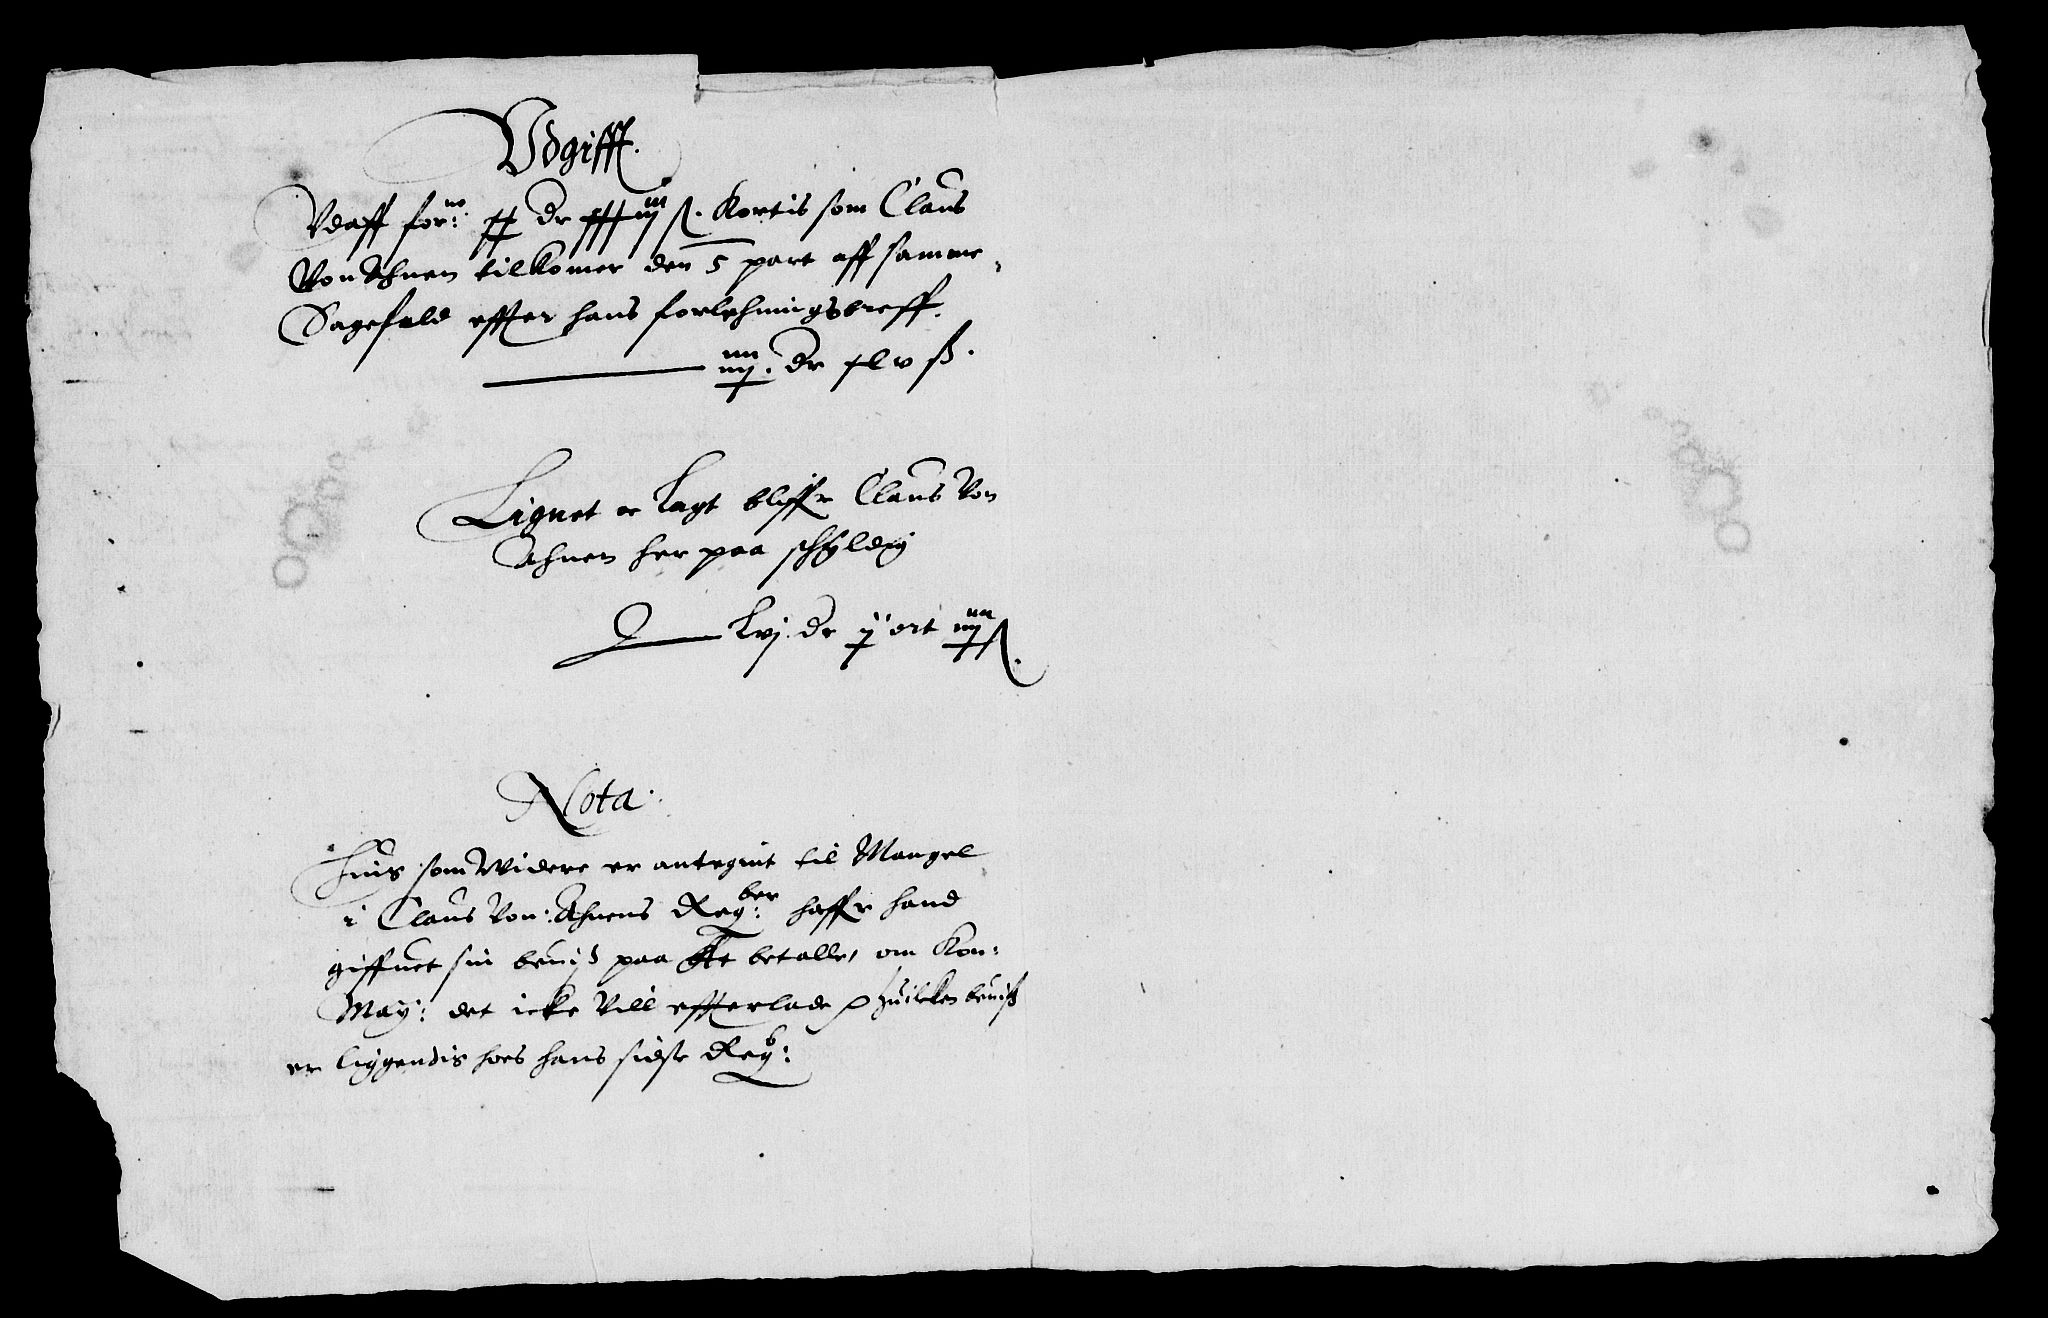 Vdgifft.
Vdaff forne: xx dr xxxiij ß. Kortis som Claus
Von Ahnen tilkomer den 5 part aff samme
Sagefald effter hans forlehningsbreff.
iiij. dr xlv ß.
Lignet oc lagt bliffr Claus Von
Ahnen her paa schyldig
Lvj. dr ij ort iiij ß.
Nota.
Huis som Widere er antegnit til Mangel
i Claus Von: Ahnens Regber: haffr hand
giffuet sin beuiß paa at betalle, om Kon:
May: det icke Vill effterlade, huilcken beuiß
er liggendis hoes hans sidste Regb: